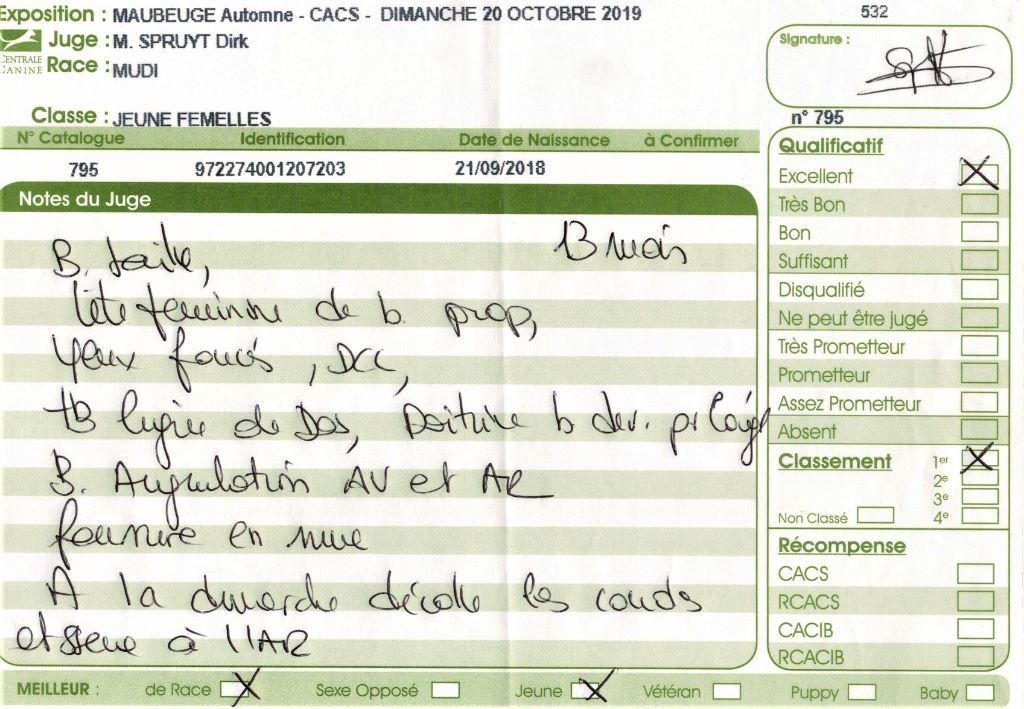 Exposition : MAUBEUGE Automne - CACS - DIMANCHE 20 OCTOBRE 2019
532
CENTRALE
CANINE
Juge : M. SPRUYT Dirk
Race : MUDI
Signature :
Classe : JEUNE FEMELLES
n° 795
N° Catalogue Identification Date de Naissance à Confirmer
795 972274001207203 21/09/2018
Notes du Juge
13 mois
B. taille,
tête feminine de b. prop,
Yeux foncés, DCC,
tB ligne de Dos, Poitrine b dev. pr l'âge
B. Angulation AV et AR
fourrure en mue
A la dmarche décolle les couds
et serre à l'AR
Qualificatif
Excellent
Très Bon
Bon
Suffisant
Disqualifié
Ne peut être jugé
Très Prometteur
Prometteur
Assez Prometteur
Absent
Classement 1er
2e
3e
Non Classé 4e
Récompense
CACS
RCACS
CACIB
RCACIB
MEILLEUR : de Race Sexe Opposé Jeune Vétéran Puppy Baby